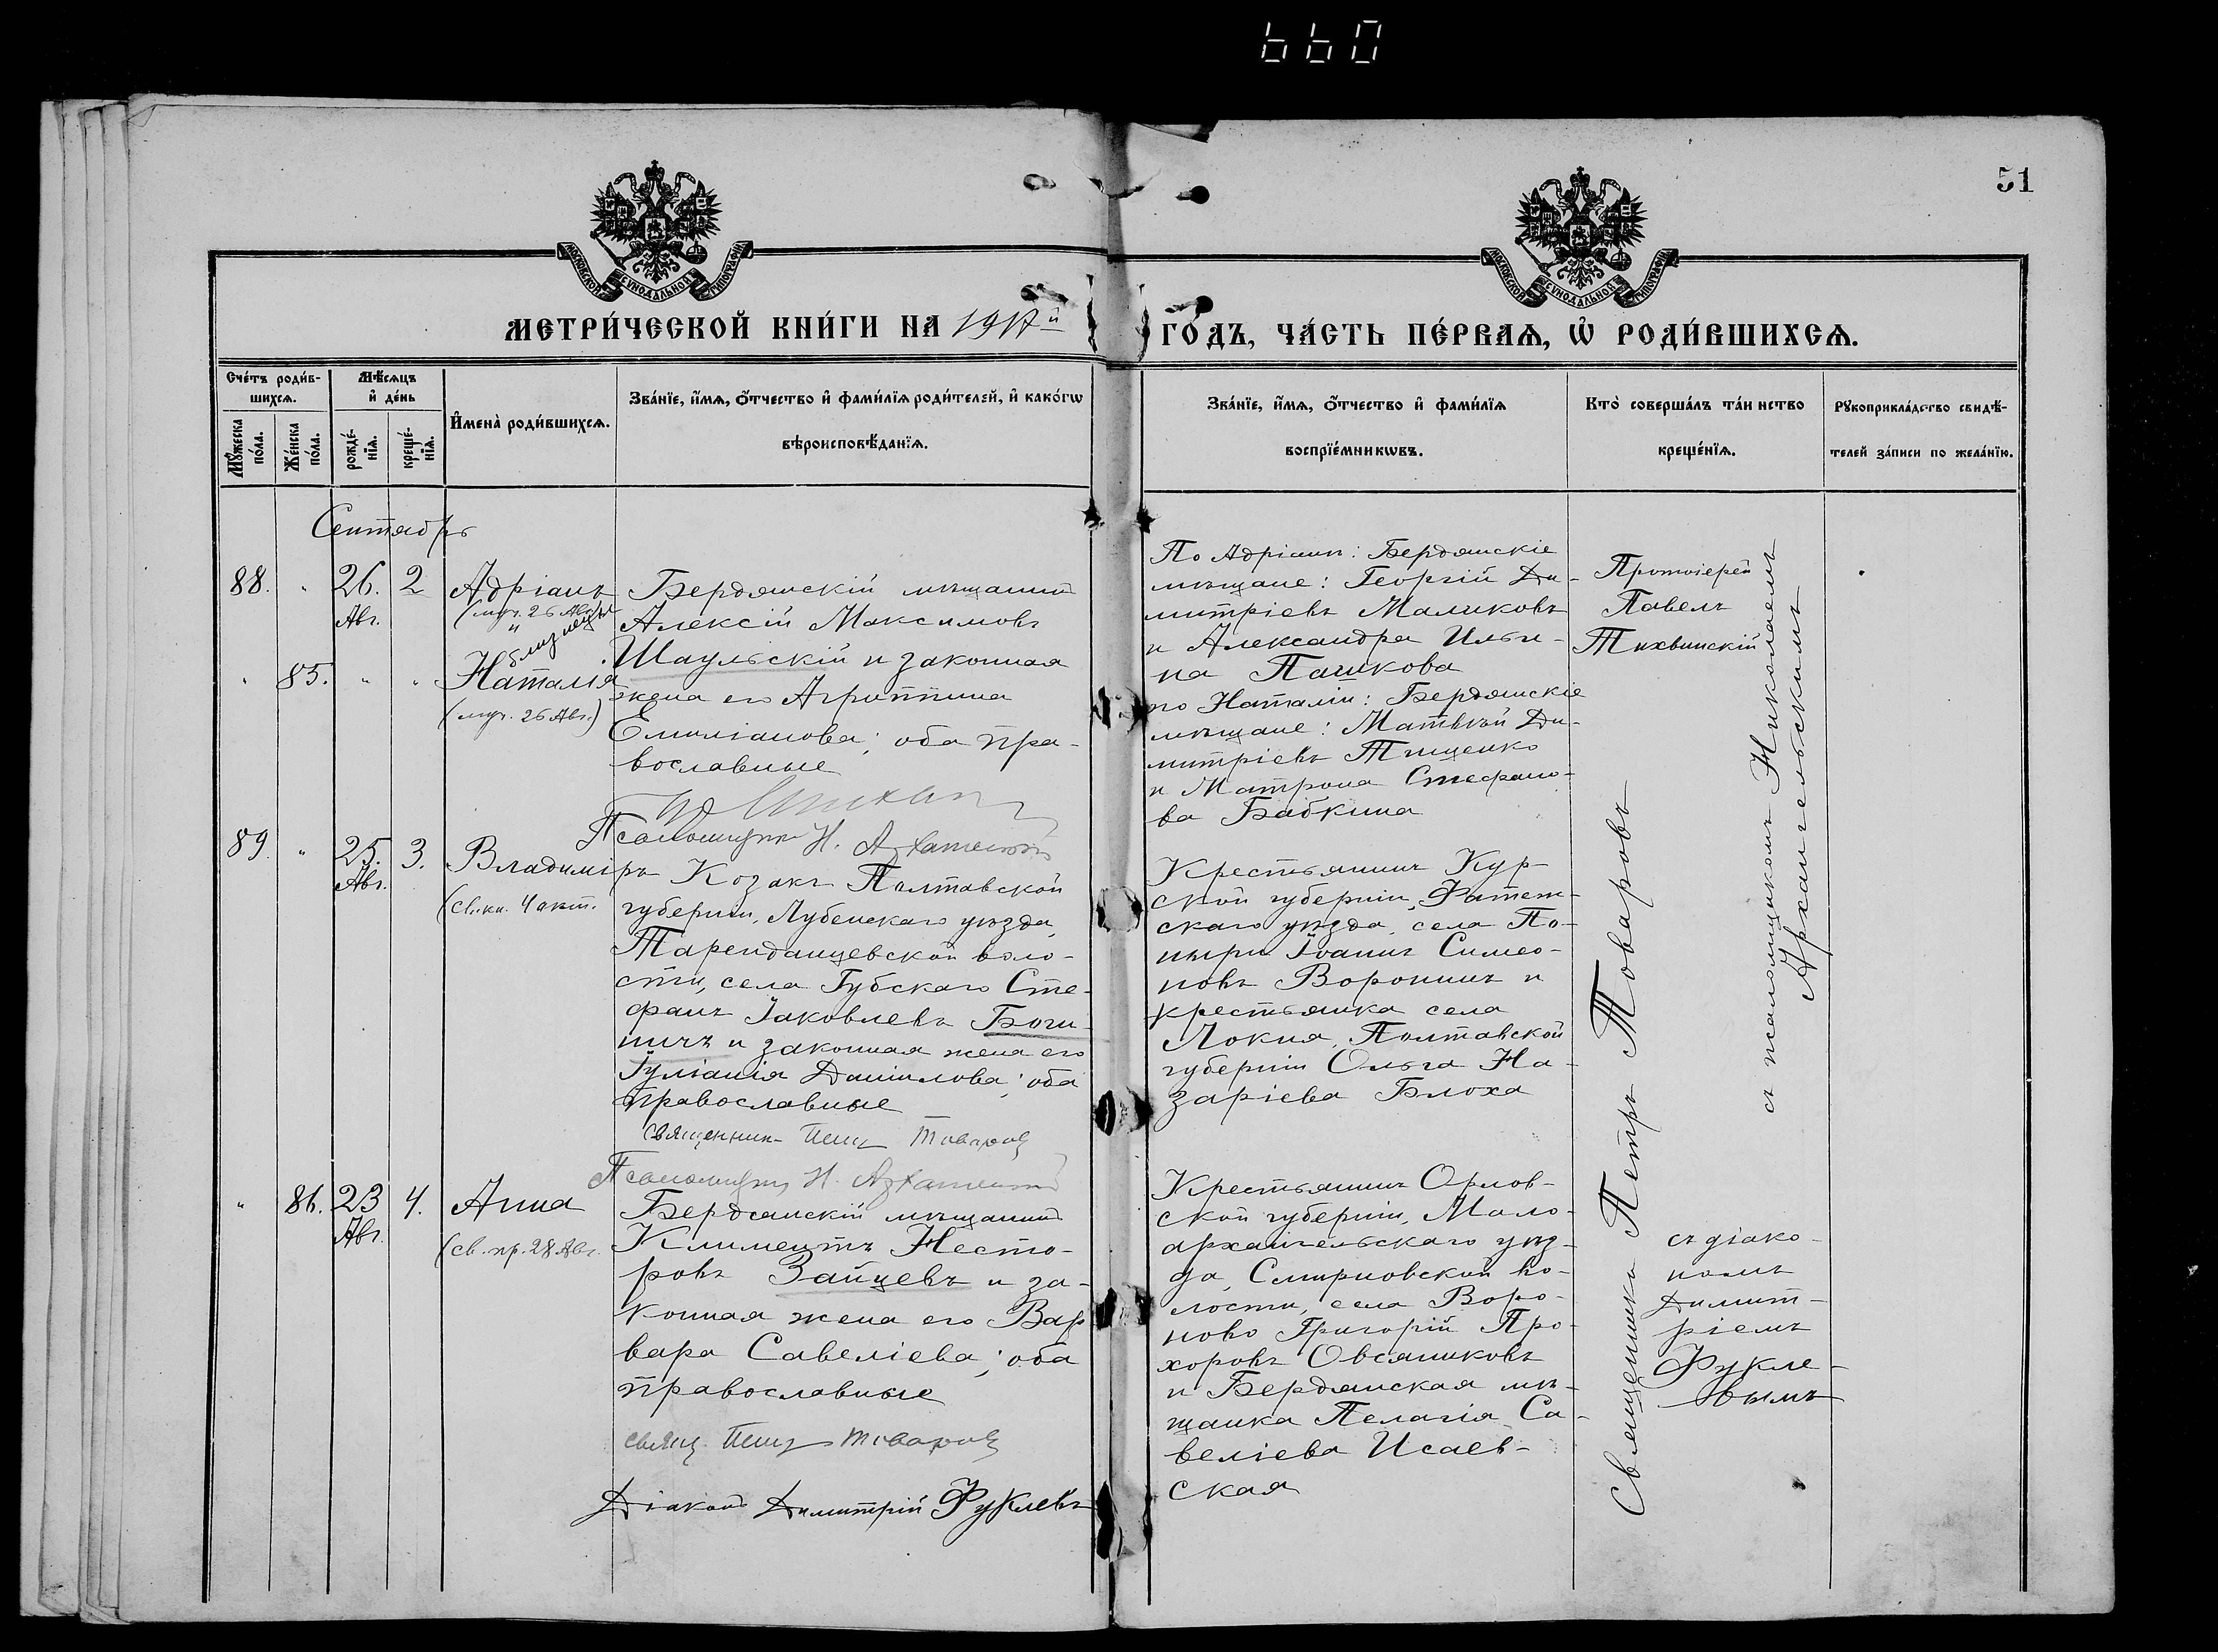 660
51
МОСКОВСКОЙ СѴНОДАЛЬНОЙ ТИПОГРАФІИ
МОСКОВСКОЙ СѴНОДАЛЬНОЙ ТИПОГРАФІИ
МЕТРИ́ЧЕСКОЙ КНИ́ГИ НА 1917й
ГО́ДЪ, ЧА́СТЬ ПЕ́РВАѦ, Ѡ҆ РОДИ́ВШИХСѦ.
Сче́тъ роди́в-
шихсѧ.
Мꙋ́жеска
по́ла.
Же́нска
по́ла.
Мѣ́сѧцъ
и҆ де́нь
рожде́-
нїѧ.
креще́-
нїѧ.
И҆мена̀ роди́вшихсѧ.
Зва́нїе, и҆́мѧ, ѻ҆́тчество и҆ фами́лїѧ роди́телей, и҆ како́гѡ
вѣроисповѣ́данїѧ.
Зва́нїе, и҆́мѧ, ѻ҆́тчество и҆ фами́лїѧ
воспрїе́мникѡвъ.
Кто̀ соверша́лъ та́инство
креще́нїѧ.
Рꙋкоприкла́дство свидѣ́-
телей за́писи по жела́нїю.
Сентябрь
88. " 26. Авг. 2
Адріанъ
(муч. 26 Авг.)
и
близнецы
" 85. " "
Наталія
(муч. 26 Авг.)
Бердянскій мѣщанинъ
Алексій Максимовъ
Шаульскій и законная
жена его Агриппина
Емиліанова; оба пра-
вославные
Псаломщикъ Н. Архангельскій
По Адріанѣ: Бердянскіе
мѣщане: Георгій Ди-
митріевъ Маликовъ
и Александра Ильи-
на Пашкова
по Наталіи: Бердянскіе
мѣщане: Матѳей Ди-
митріевъ Тищенко
и Матрона Стефано-
ва Бабкина
Протоіерей
Павелъ
Тихвинскій
89. " 25. Авг. 3.
Владиміръ
(св. кн. 4 окт.
Козакъ Полтавской
губерніи, Лубенскаго уѣзда,
Тарандинцевской воло-
сти, села Губскаго Сте-
фанъ Іаковлевъ Боги-
ничъ и законная жена его
Іуліанія Даніилова; оба
православные
Священникъ Петръ Товаровъ
Псаломщикъ Н. Архангельскій
Крестьянинъ Кур-
ской губерніи, Фатеж-
скаго уѣзда, села По-
ныри Іоаннъ Симео-
новъ Воронинъ и
крестьянка села
Локня, Полтавской
губерніи Ольга На-
заріева Блоха
Священникъ Петръ Товаровъ
съ псаломщикомъ Николаемъ
Архангельскимъ
" 86. 23 Авг. 4.
Анна
(св. пр. 28 Авг.
Бердянскій мѣщанинъ
Климентъ Несто-
ровъ Зайцевъ и за-
конная жена его Вар-
вара Савеліева; оба
православные
свящ. Петръ Товаровъ
Діаконъ Димитрій Фуклевъ
Крестьянинъ Орлов-
ской губерніи, Мало-
архангельскаго уѣз-
да, Смирновской во-
лости, села Воро-
ново Григорій Про-
хоровъ Овсяниковъ
и Бердянская мѣ-
щанка Пелагія Са-
веліева Исаев-
ская
съ діако-
номъ
Димит-
ріемъ
Фукле-
вымъ